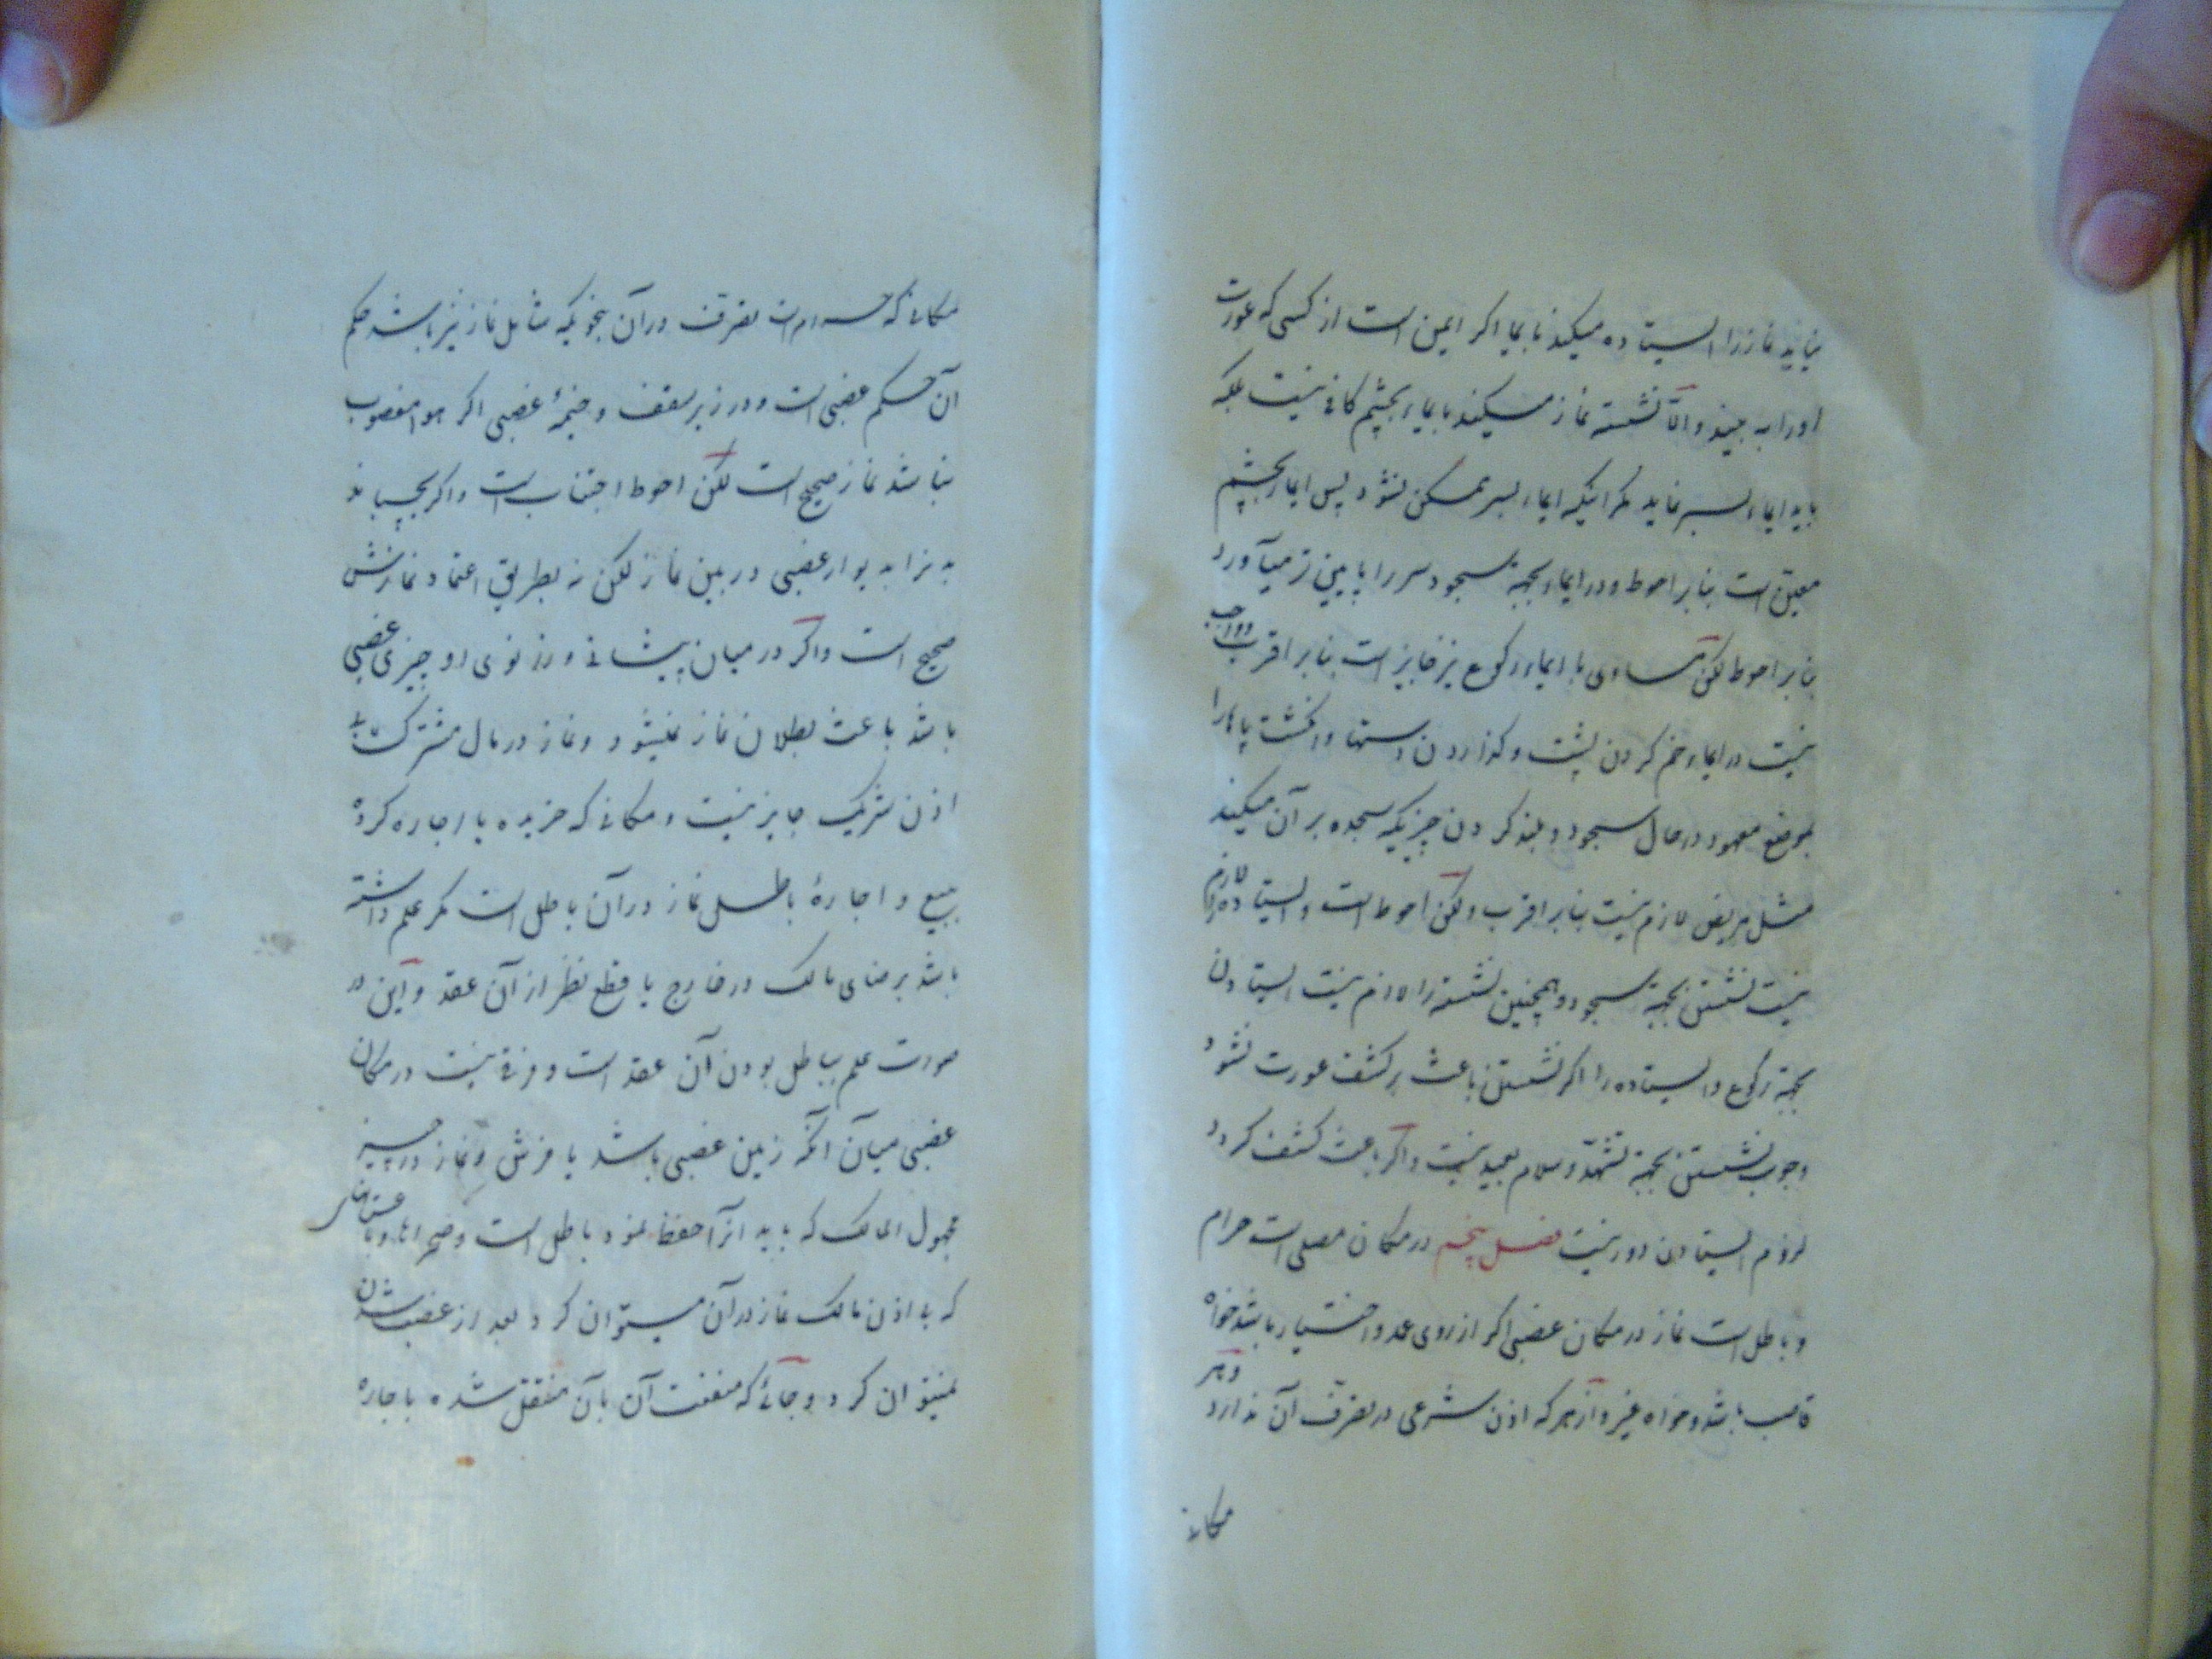 نیاید نماز را ایستاده میکند بایما اگر ایمن است از کسی که عورت
او را به بیند والّا نشسته نماز میکند بایماء بچشم کافی نیست بلکه
باید ایماء بسر نماید مگر اینکه ایماء بسر ممکن نشود پس ایماء بچشم
معین است بنابر احوط و در ایماء بجهة سجود سر را پایین تر میآورد
بنابر احوط لکن مساوی با ایماء رکوع نیز جایز است بنابر اقرب و واجب
نیست در ایماء خم کردن پشت و گذاردن دستها و انگشت پاها را
بموضع معهود در حال سجود و بلند کردن چیزیکه سجده بر آن میکند
مثل مریض لازم نیست بنابر اقرب ولکن احوط است و ایستاده را لازم
نیست نشستن بجهة سجود و همچنین نشسته را لازم نیست ایستادن
بجهة رکوع و ایستاده را اگر نشستن باعث بر کشف عورت نشود
وجوب نشستن بجهة تشهّد و سلام بعید نیست و اگر باعث کشف گردد
لزوم ایستادن دور نیست فصل پنجم در مکان مصلی است حرام
و باطل است نماز در مکان غصبی اگر از روی عمد و اختیار باشد خواه
غاصب باشد و خواه غیر و از هر که اذن شرعی در تصرف آن ندارد و هر
مکانی
مکانی که حرام است تصرف در آن بنحویکه شامل نماز نیز باشد حکم
آن حکم غصبی است و در زیر سقف و خیمهٔ غصبی اگر هوا مغصوب
نباشد نماز صحیح است لکن احوط اجتناب است و اگر بچسباند
بدن را به دیوار غصبی در بین نماز لکن نه بطریق اعتماد نمازش
صحیح است و اگر در میان پیشانی و زانوی او چیزی غصبی
باشد باعث بطلان نماز نمیشود و نماز در مال مشترک بی
اذن شریک جایز نیست و مکانی که خریده یا اجاره کرده
ببیع و اجارهٔ باطل نماز در آن باطل است مگر علم داشته
باشد برضای مالک در خارج با قطع نظر از آن عقد و این در
صورت علم بباطل بودن آن عقد است و فرقی نیست در مکان
غصبی میان آنکه زمین غصبی باشد یا فرش و نماز در چیز
مجهول المالک که باید آنرا حفظ نمود باطل است و صحراها و باغستانهائی
که بی اذن مالک نماز در آن میتوان کرد بعد از غصب شدن
نمیتوان کرد و جائی که منفعت آن بآن منتقل شده باجاره